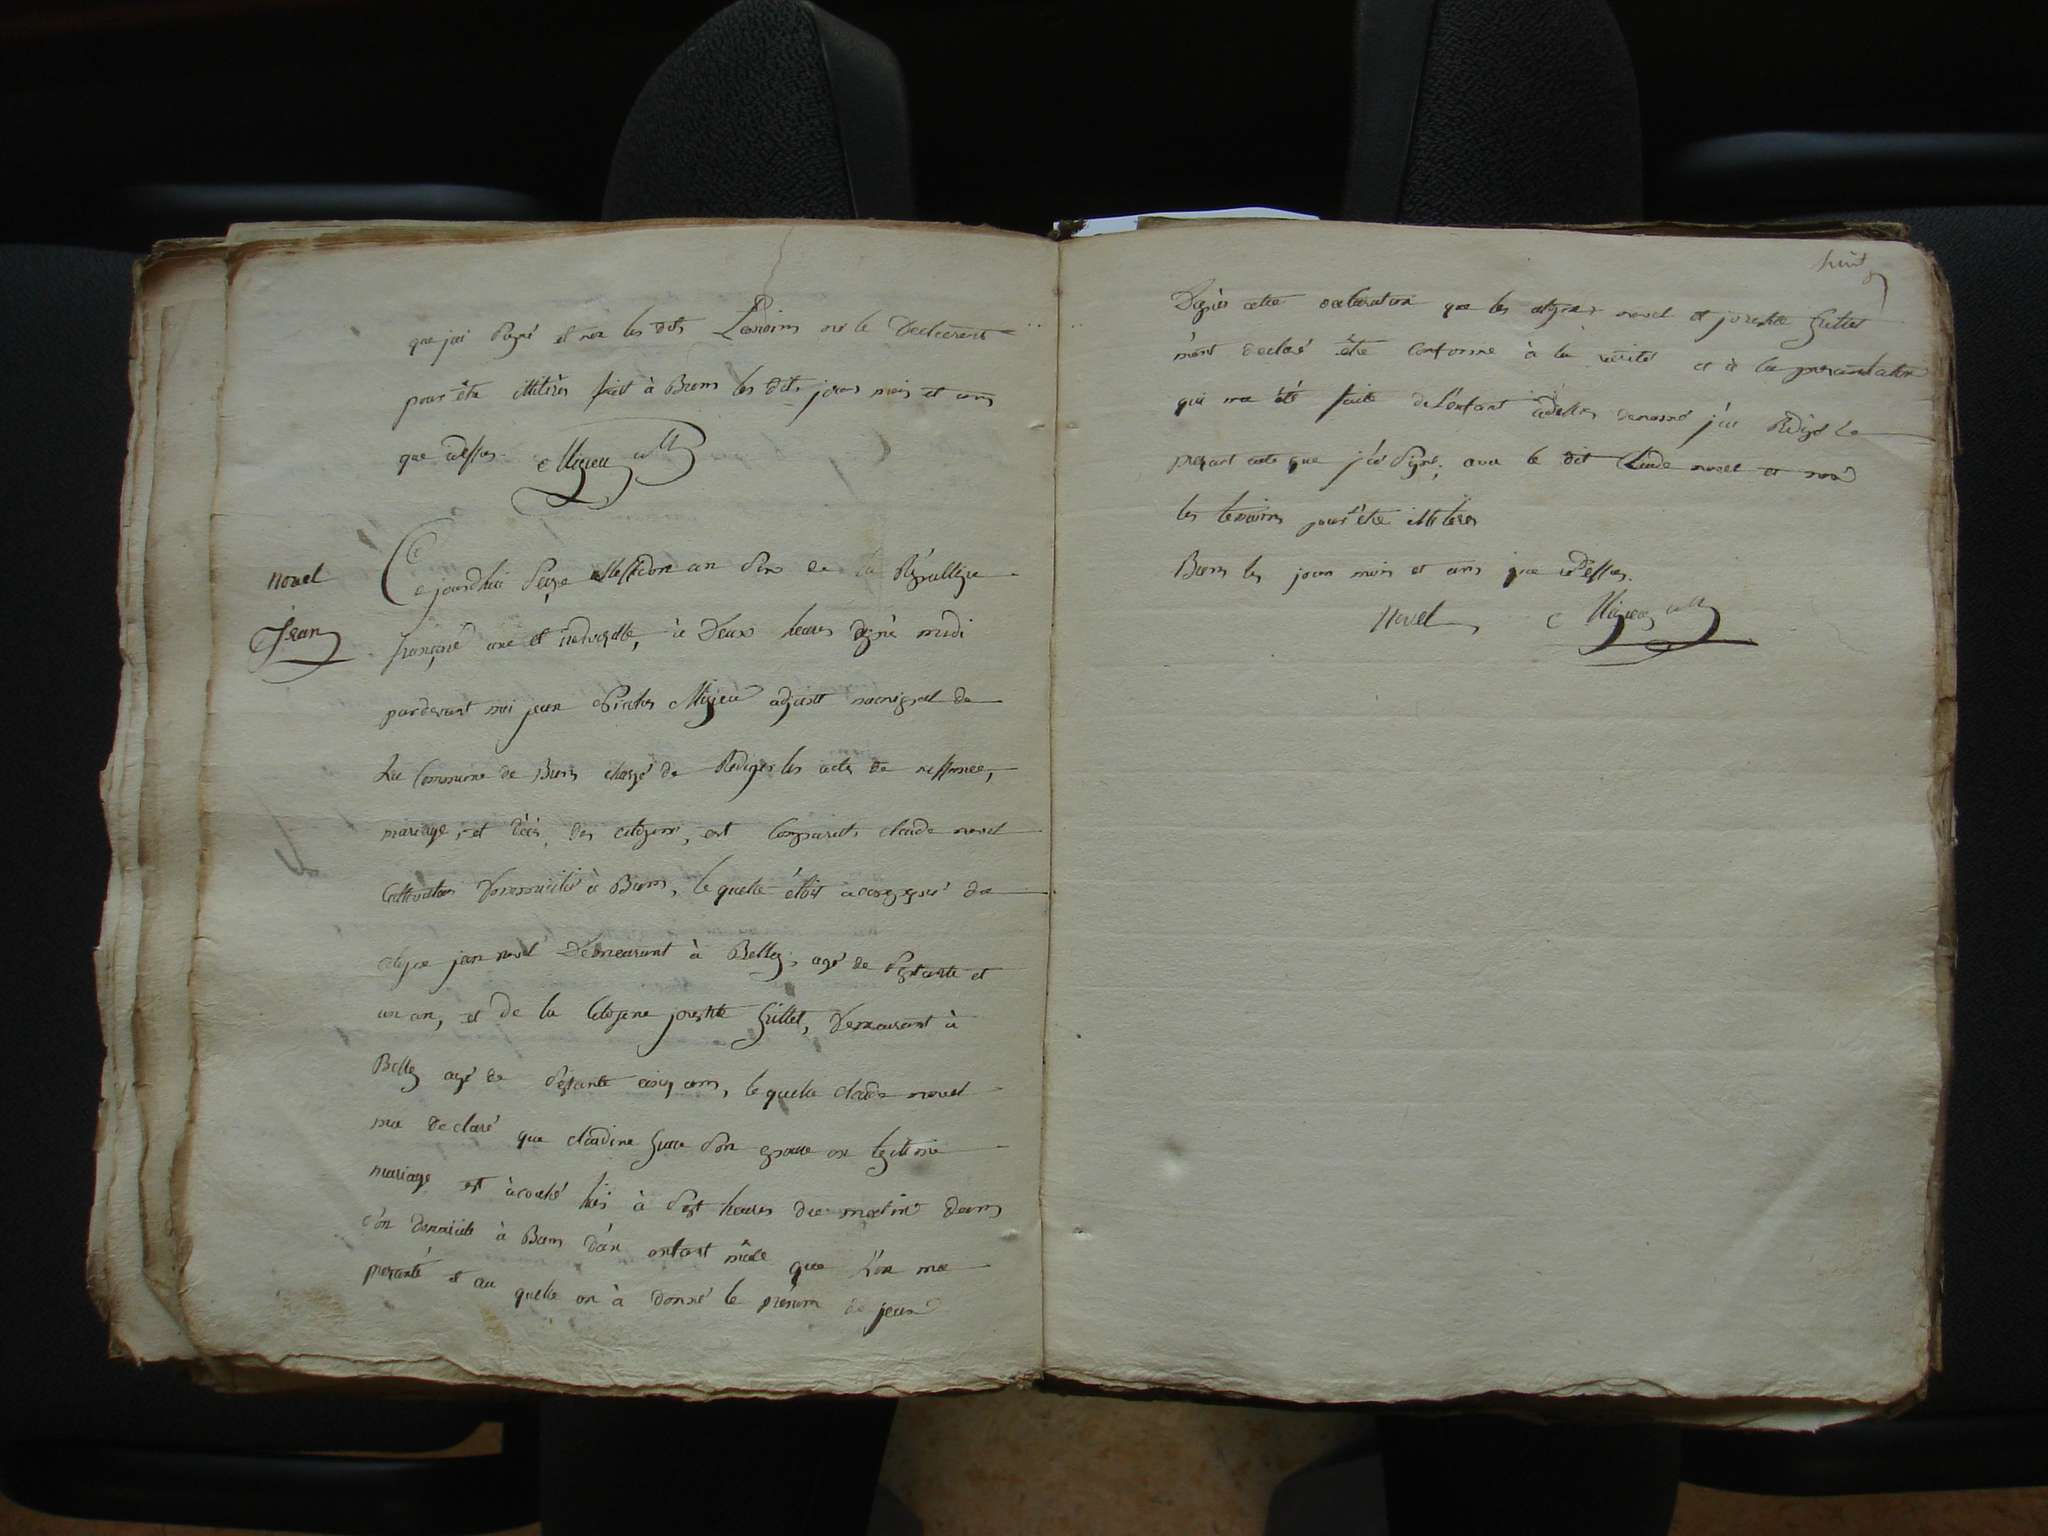 que jai signé et non les dits temoins ni le declarent
pour être illitérés fait à Bions les dits jours mois et ans
que dessus. Migieu adt
novel
Jean
Ce jourdhui seize Messidor an six de la Républiqe
françaisè une et indivisible, à deux heures après midi
pardevant moi jean Migieu adjoint municipal de
La Commune de Bions chargé de Rediger les actes de nessance,
mariage, et décès, des citoyens, est comparuts claude novel
Cultivateur domicilié à Bions, le quelle étois acompagné du
citoyen jean novel demeurant à Belley, agé de septante et
un an, et de la citoyene josephte Gillet, demeurant à
Belley agé de septante cinq ans, le quelle claude novel
ma declaré que claudine son epouse en legitime
mariage est àcouché hiér à sept heures du matin dans
son domicile à Bions d'un enfant mâle que l'on ma
presenté et au quelle on à donné le prénom de jean
huit
8
D'après cette declaration que les citoyens novel et josephte Gillet
m'ont declaré être conforme à la vérité et à la presentation
qui ma été faite de l'enfant denommé j'ai Redigé le
present acte que j'ai signé, avec le dit Claude novel et non
les temoins pour être illiteres
Bions les jours mois et ans que dessus.
Novel Migieu adt